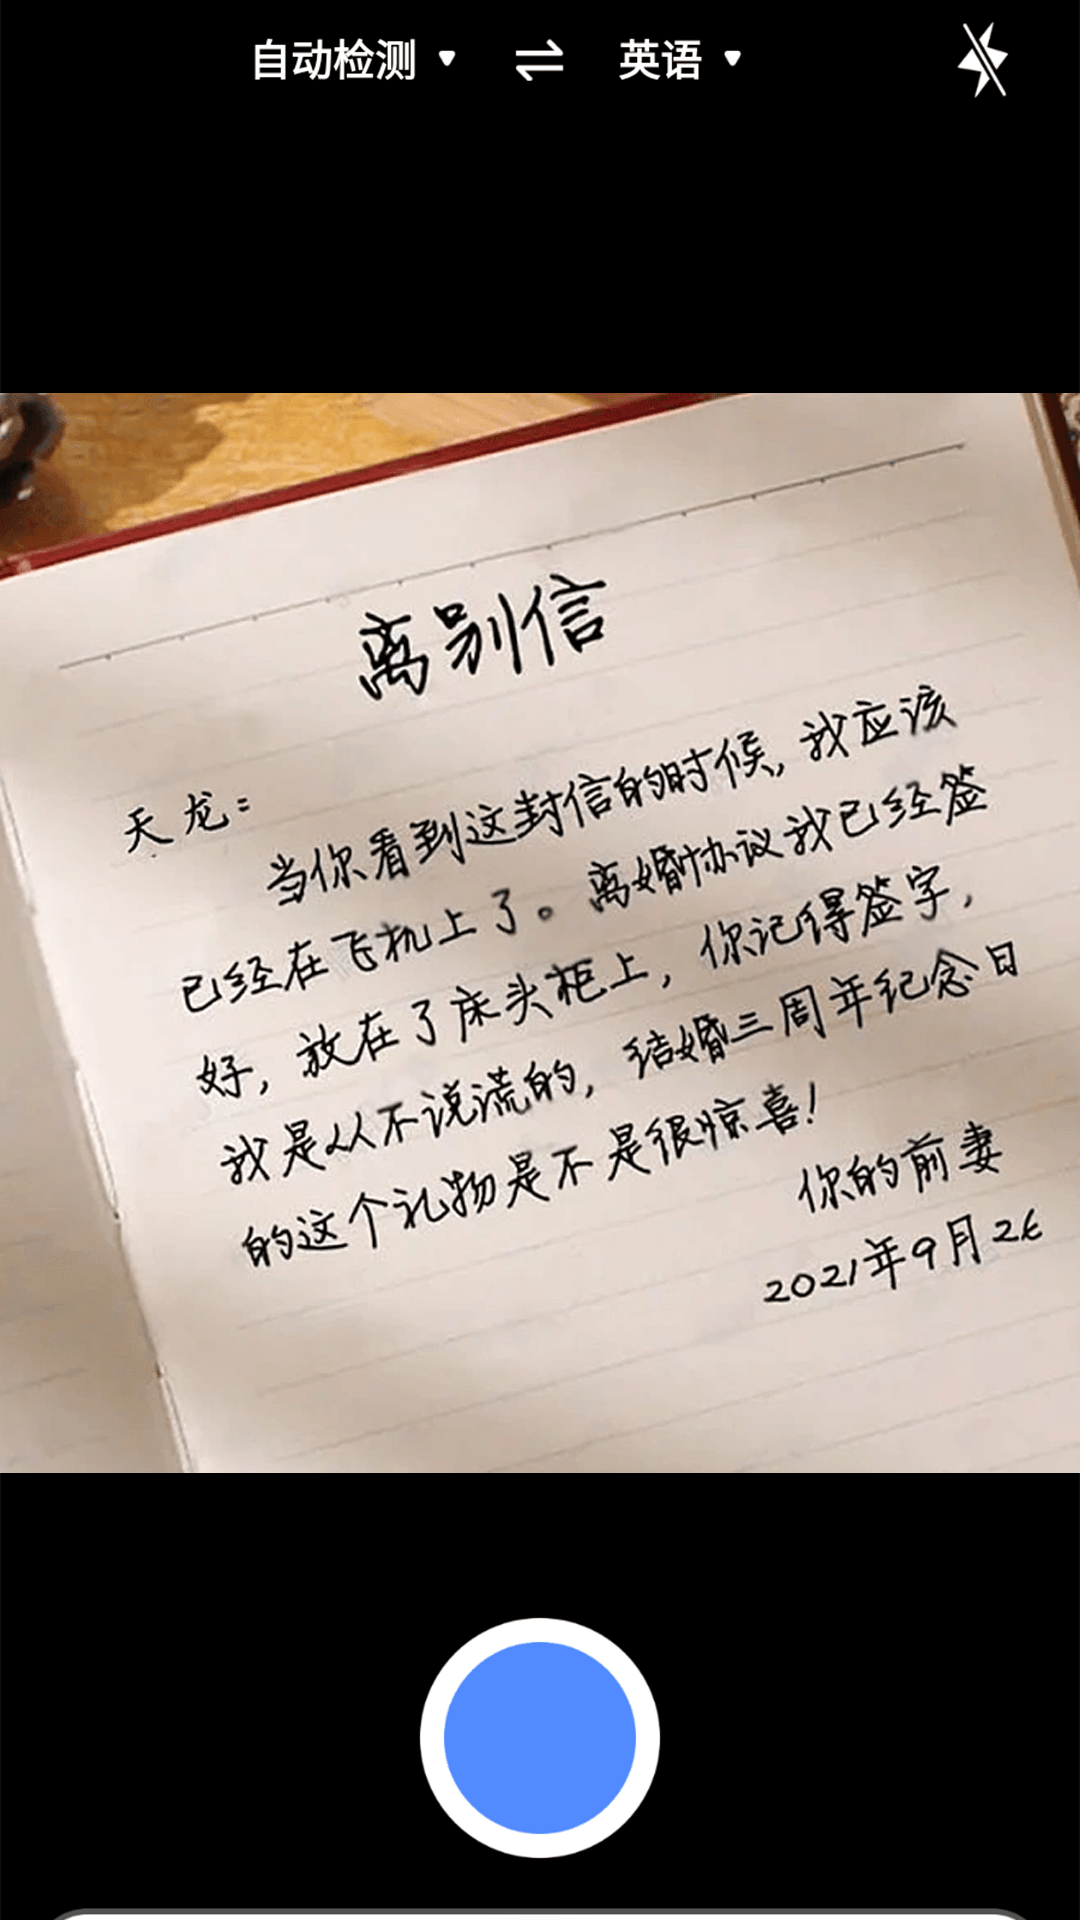 自动检测 英语
离别信
天龙：
当你看到这封信的时候，我应该
已经在飞机上了。离婚协议我已经签
好，放在了床头柜上，你记得签字，
我是从不说谎的，结婚三周年纪念日
的这个礼物是不是很惊喜！
你的前妻
2021年9月26